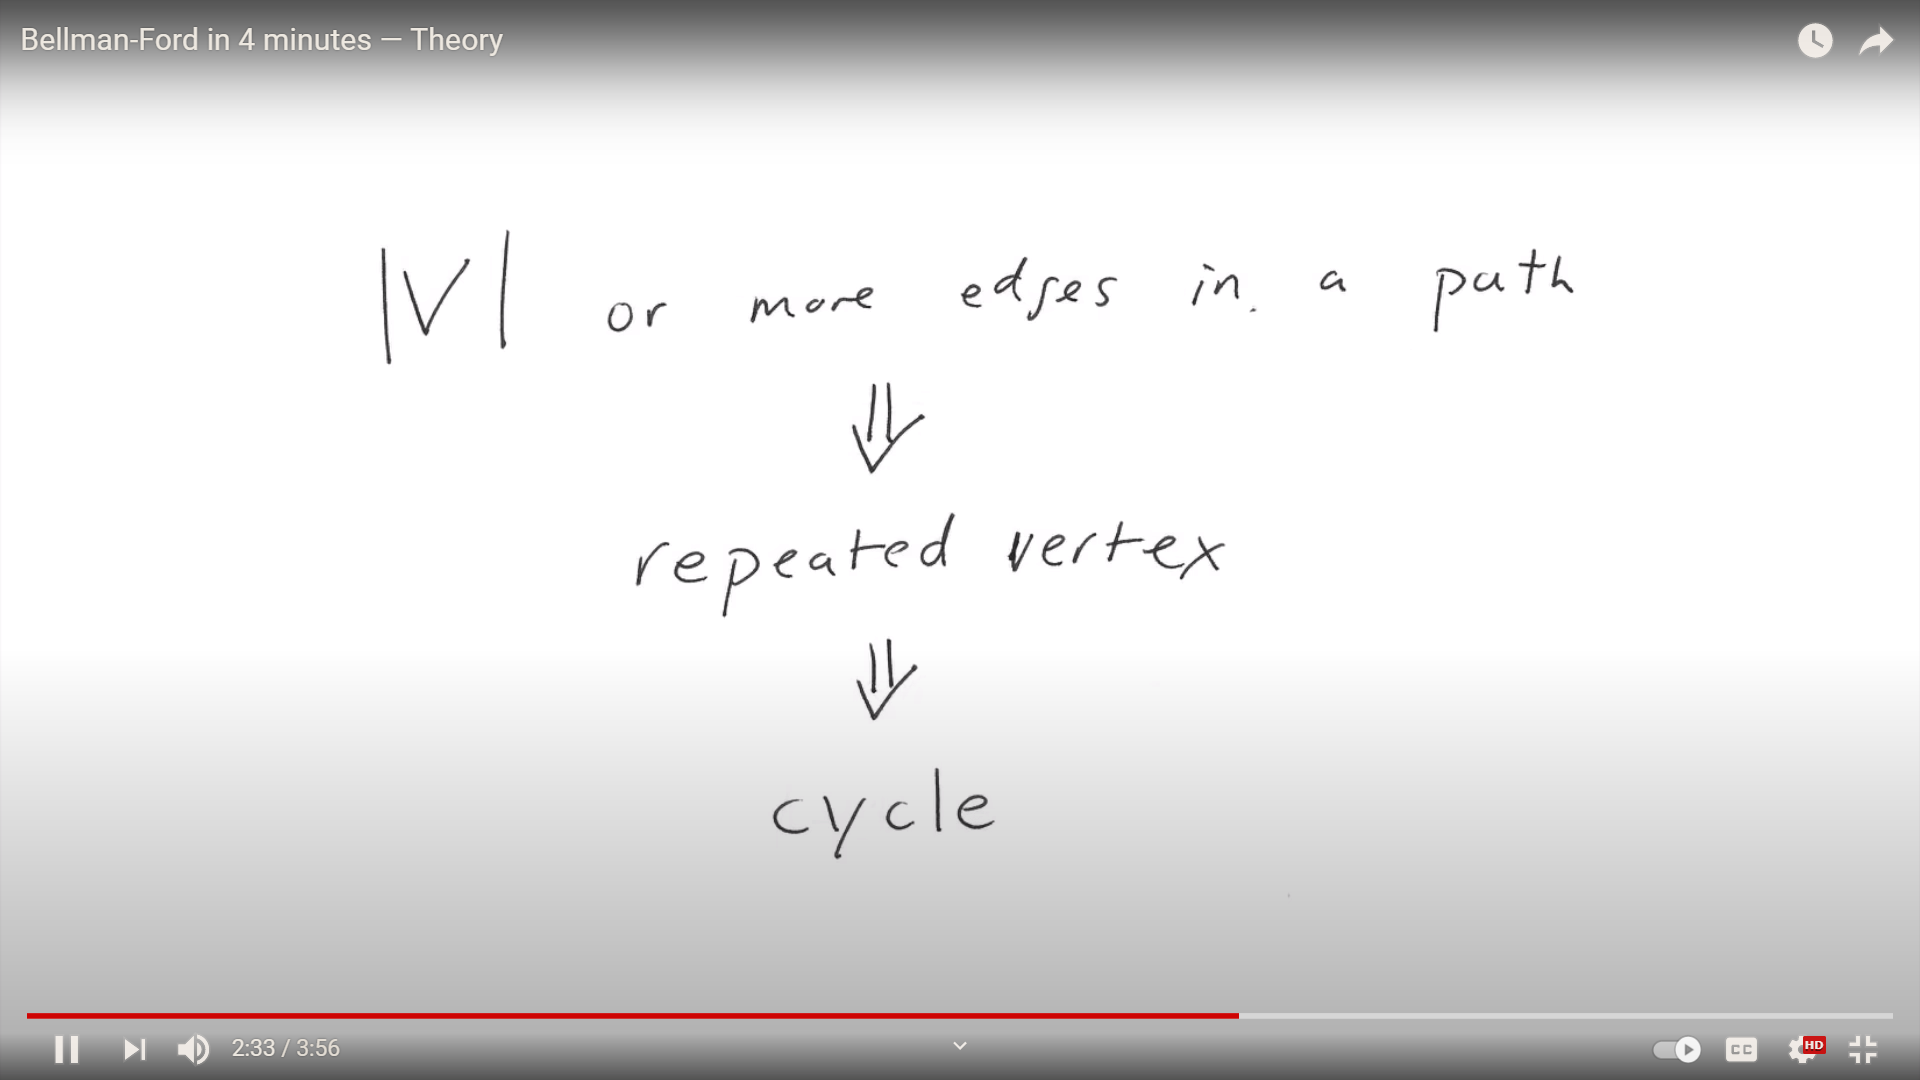 Bellman-Ford in 4 minutes — Theory
|V| or more edges in a path
⇓
repeated vertex
⇓
cycle
2:33 / 3:56
CC
HD